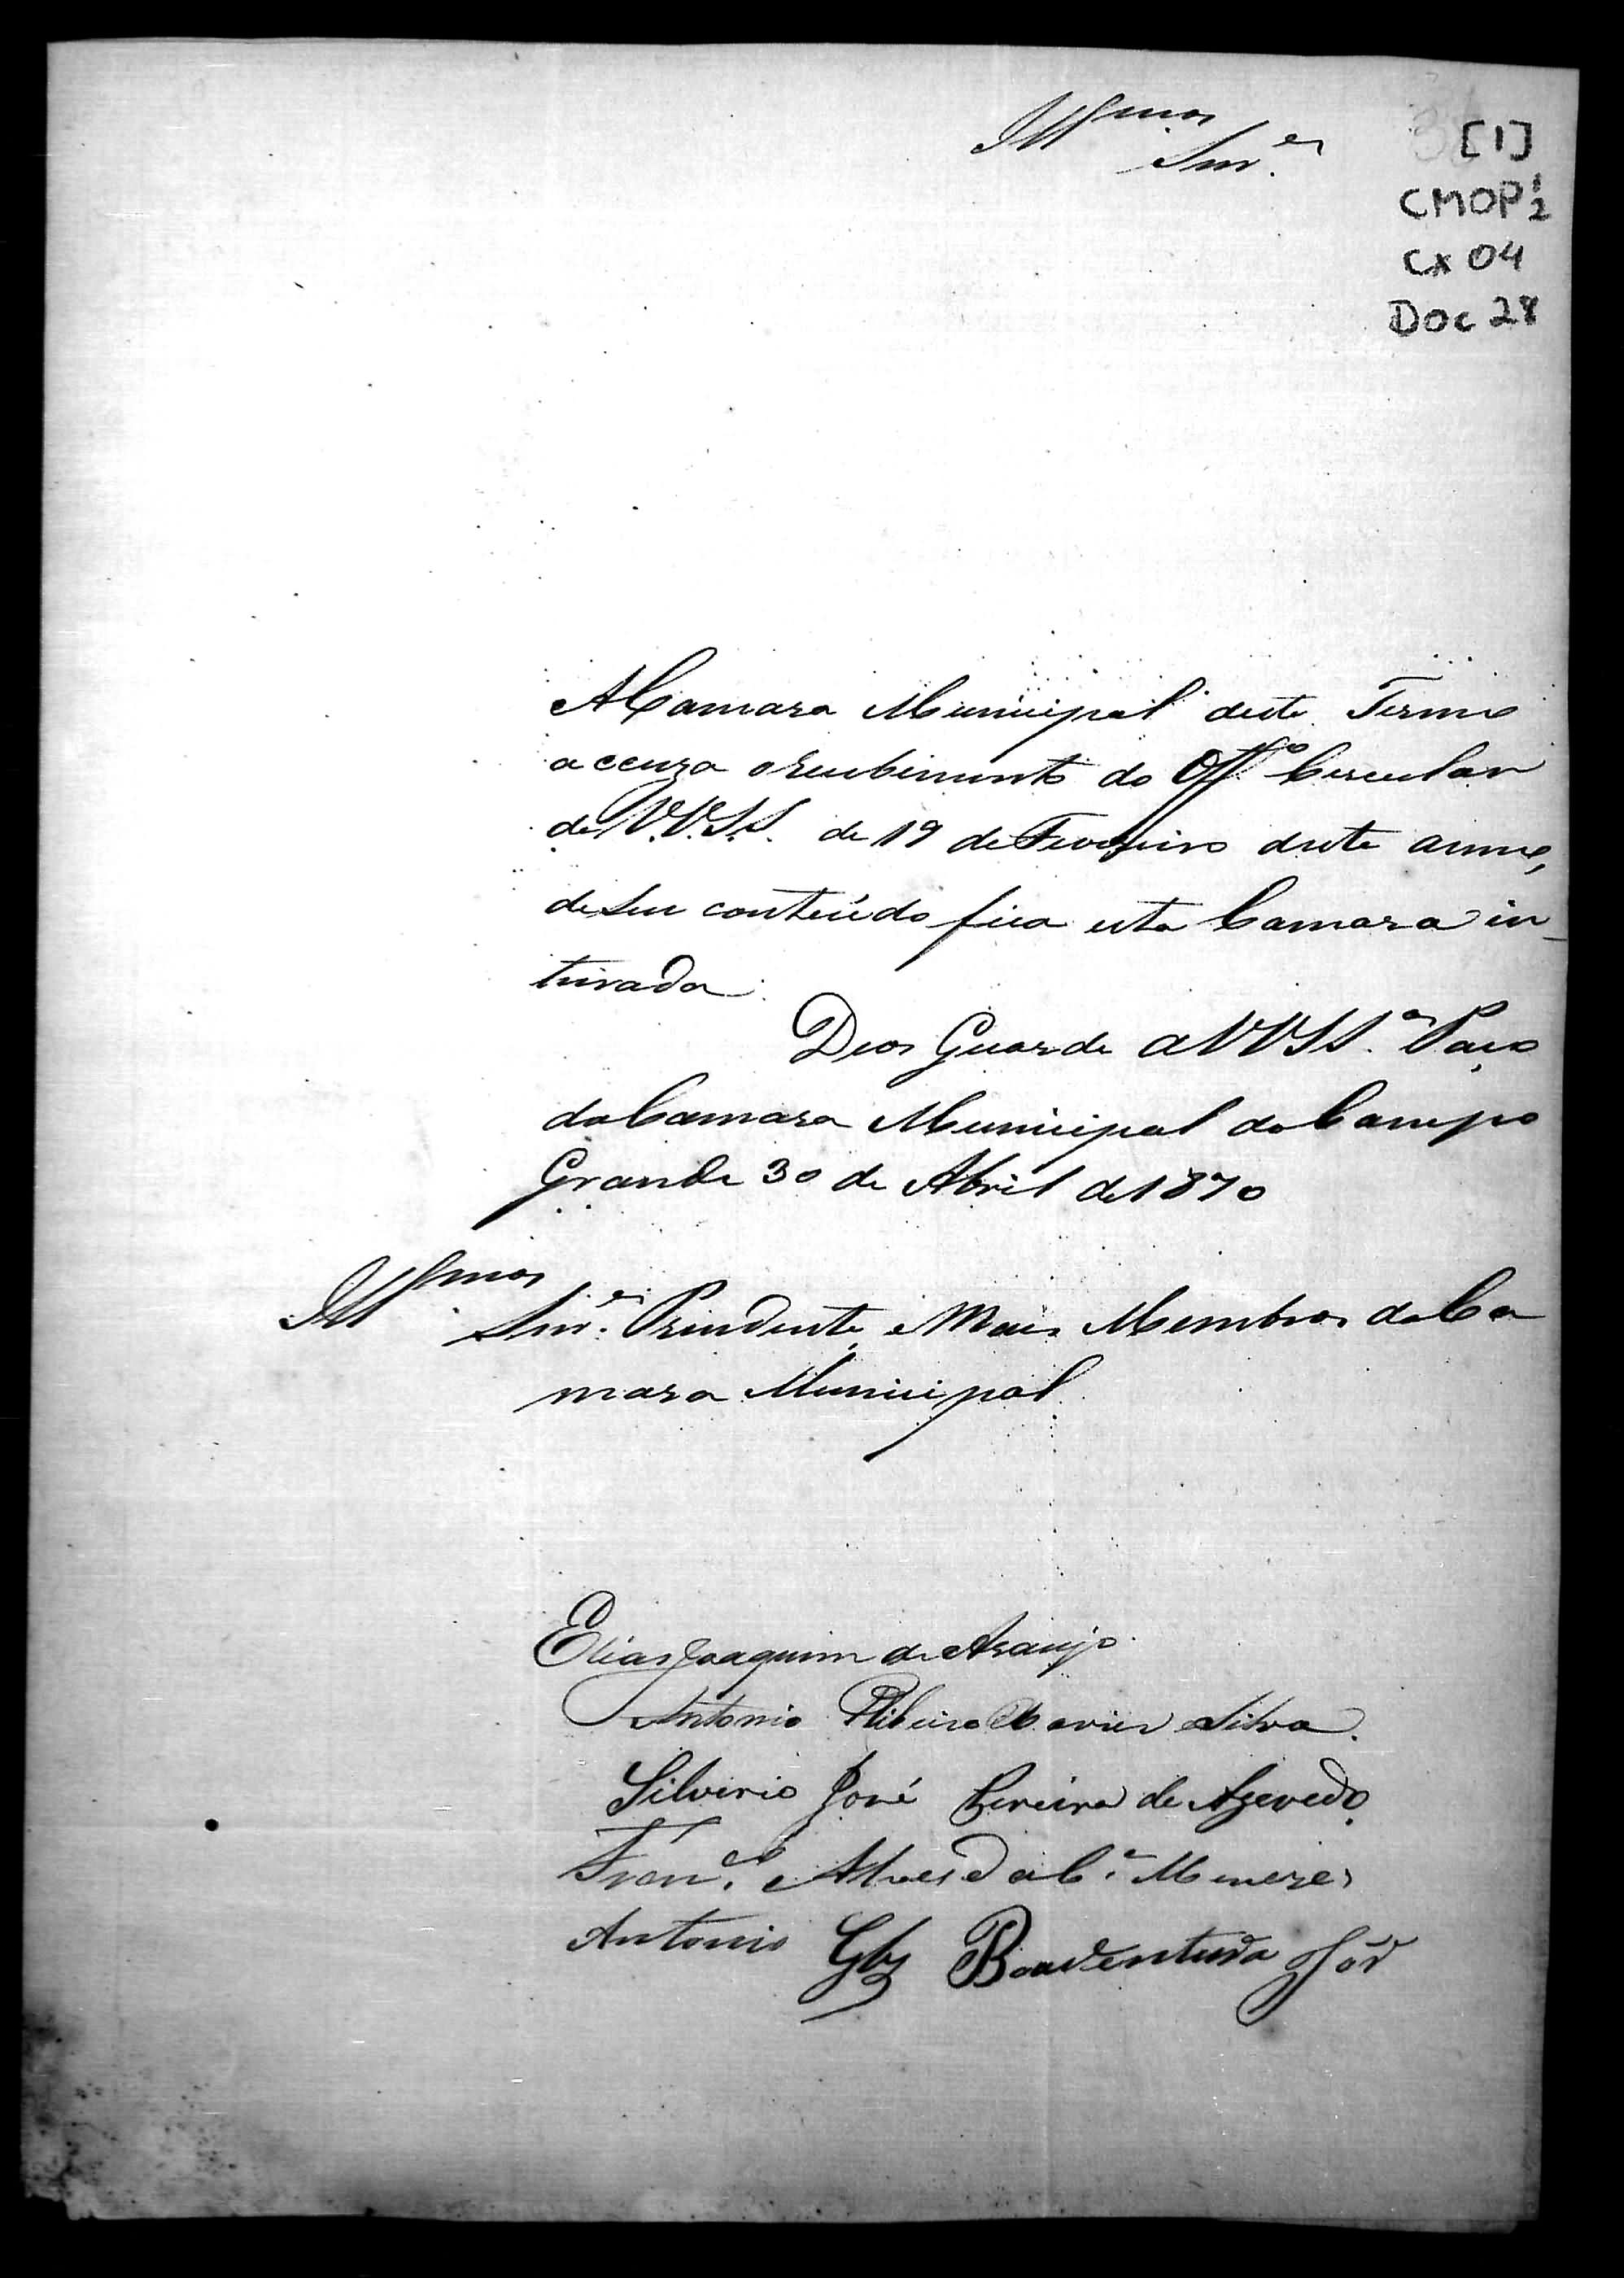 Illmos
Snr.es
[1]
CMOP 1/2
Cx 04
Doc 28
A Camara Municipal deste Termo
accuza o recebimento do Off.º Circular
de V.V.S.S. de 19 de Fevereiro deste anno,
de seu contéudo fica esta Camara in-
teirada.
Deos Guarde a VVSS.as Paço
da Camara Municipal do Campo
Grande 30 de Abril de 1870
Illmos
Snr.es Prezidente, e Mais Membros da Ca
mara Municipal.
Elias Joaquim de Araujo.
Antonio Ribeiro Xavier Silva.
Silverio José Pereira de Azevedo
Fran.co Alves da C.a Menezes
Antonio Glz Boaventura